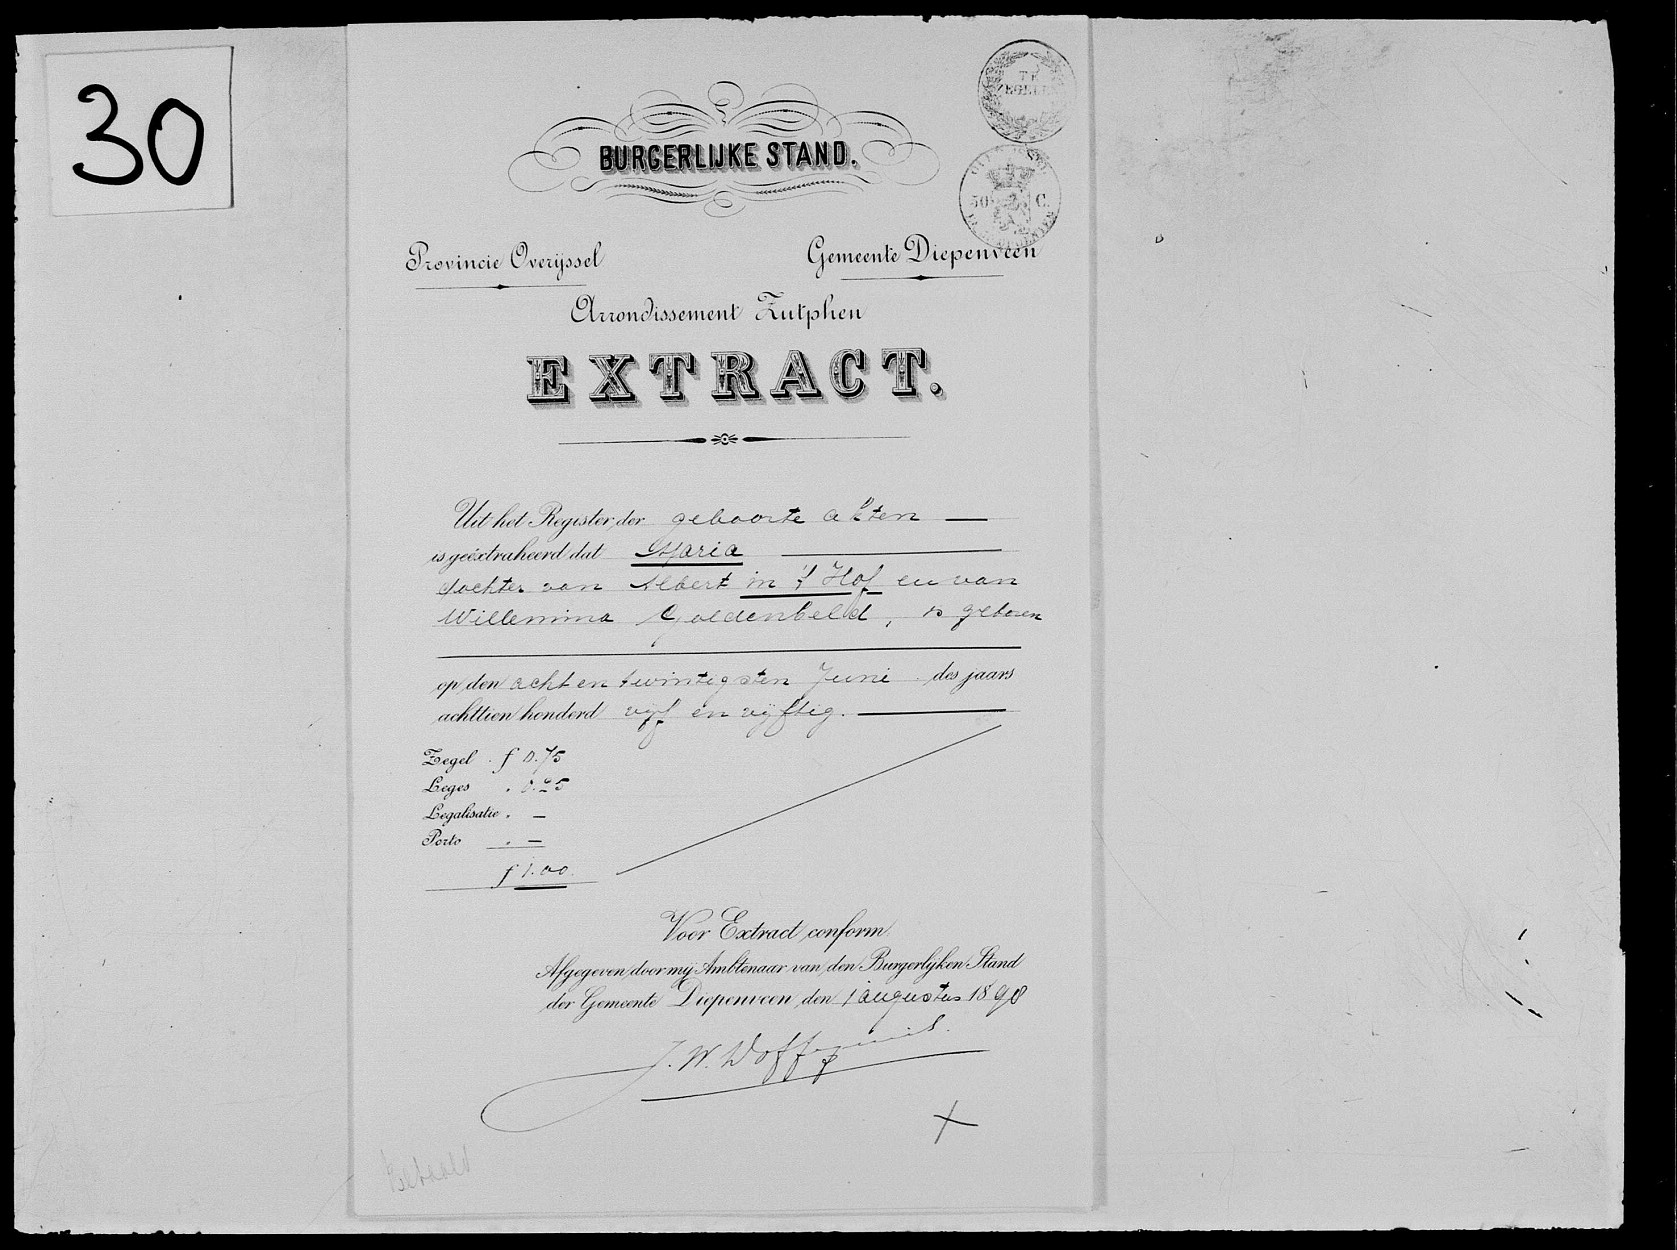 30
TE
ZEGELEN
BURGERLIJKE STAND.
50 C.
Provincie Overijssel
Gemeente Diepenveen
Arrondissement Zutphen
EXTRACT.
Uit het Register der geboorte akten —
is geëxtraheerd dat Maria
dochter van Albert in 't Hof en van
Willemina Goldenbeld, is geboren
op den acht en twintigsten Juni des jaars
achttien honderd vijf en vijftig.
Zegel . f 0.75
Leges „ 0.25
Legalisatie „ —
Porto „ —
f 1.00
Voor Extract conform
Afgegeven door mij Ambtenaar van den Burgerlijken Stand
der Gemeente Diepenveen, den 1 augustus 1890
J. W.
Betaald